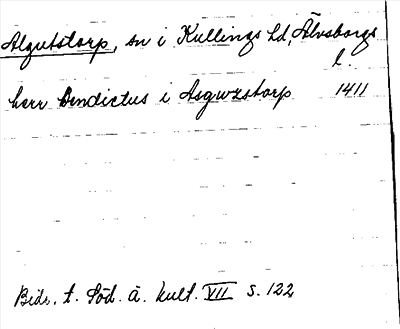 Algutstorp, sn i Kullings hd, Älvsborgs
l.
herr Bendictus i Asgwzstorp 1411
Bidr. t. Söd. ä. kult. VII s. 122